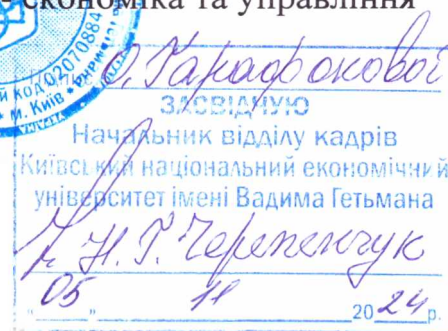 економіка та управління
код 02070884
м. Київ
О. Гарафонової
ЗАСВІДЧУЮ
Начальник відділу кадрів
Київський національний економічний
університет імені Вадима Гетьмана
Н. Г. Черепенчук
„05” 11 2024 р.